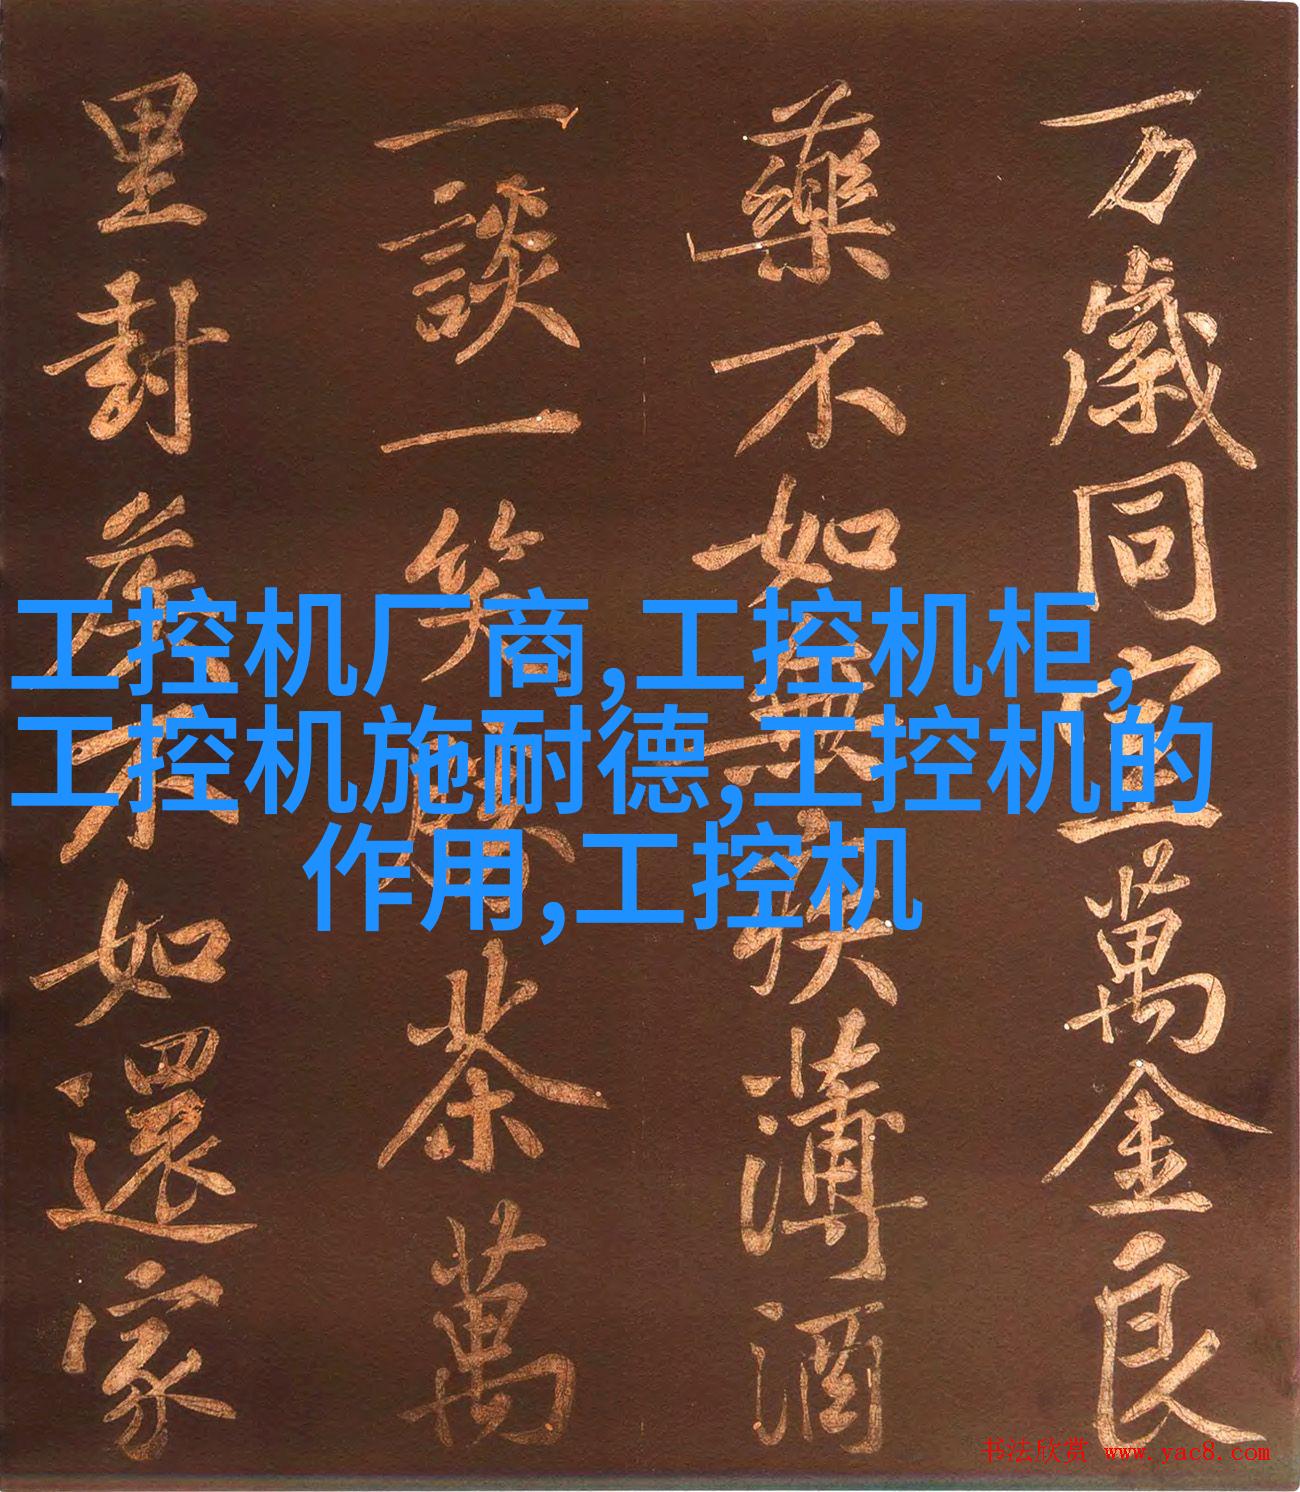 万歲同宜萬金良
藥不如無疾薄酒
一談一笑勝茶萬
里封侯不如還家
工控机厂商,工控机柜,
工控机施耐德,工控机的
作用,工控机
书法欣赏 www.yac8.com